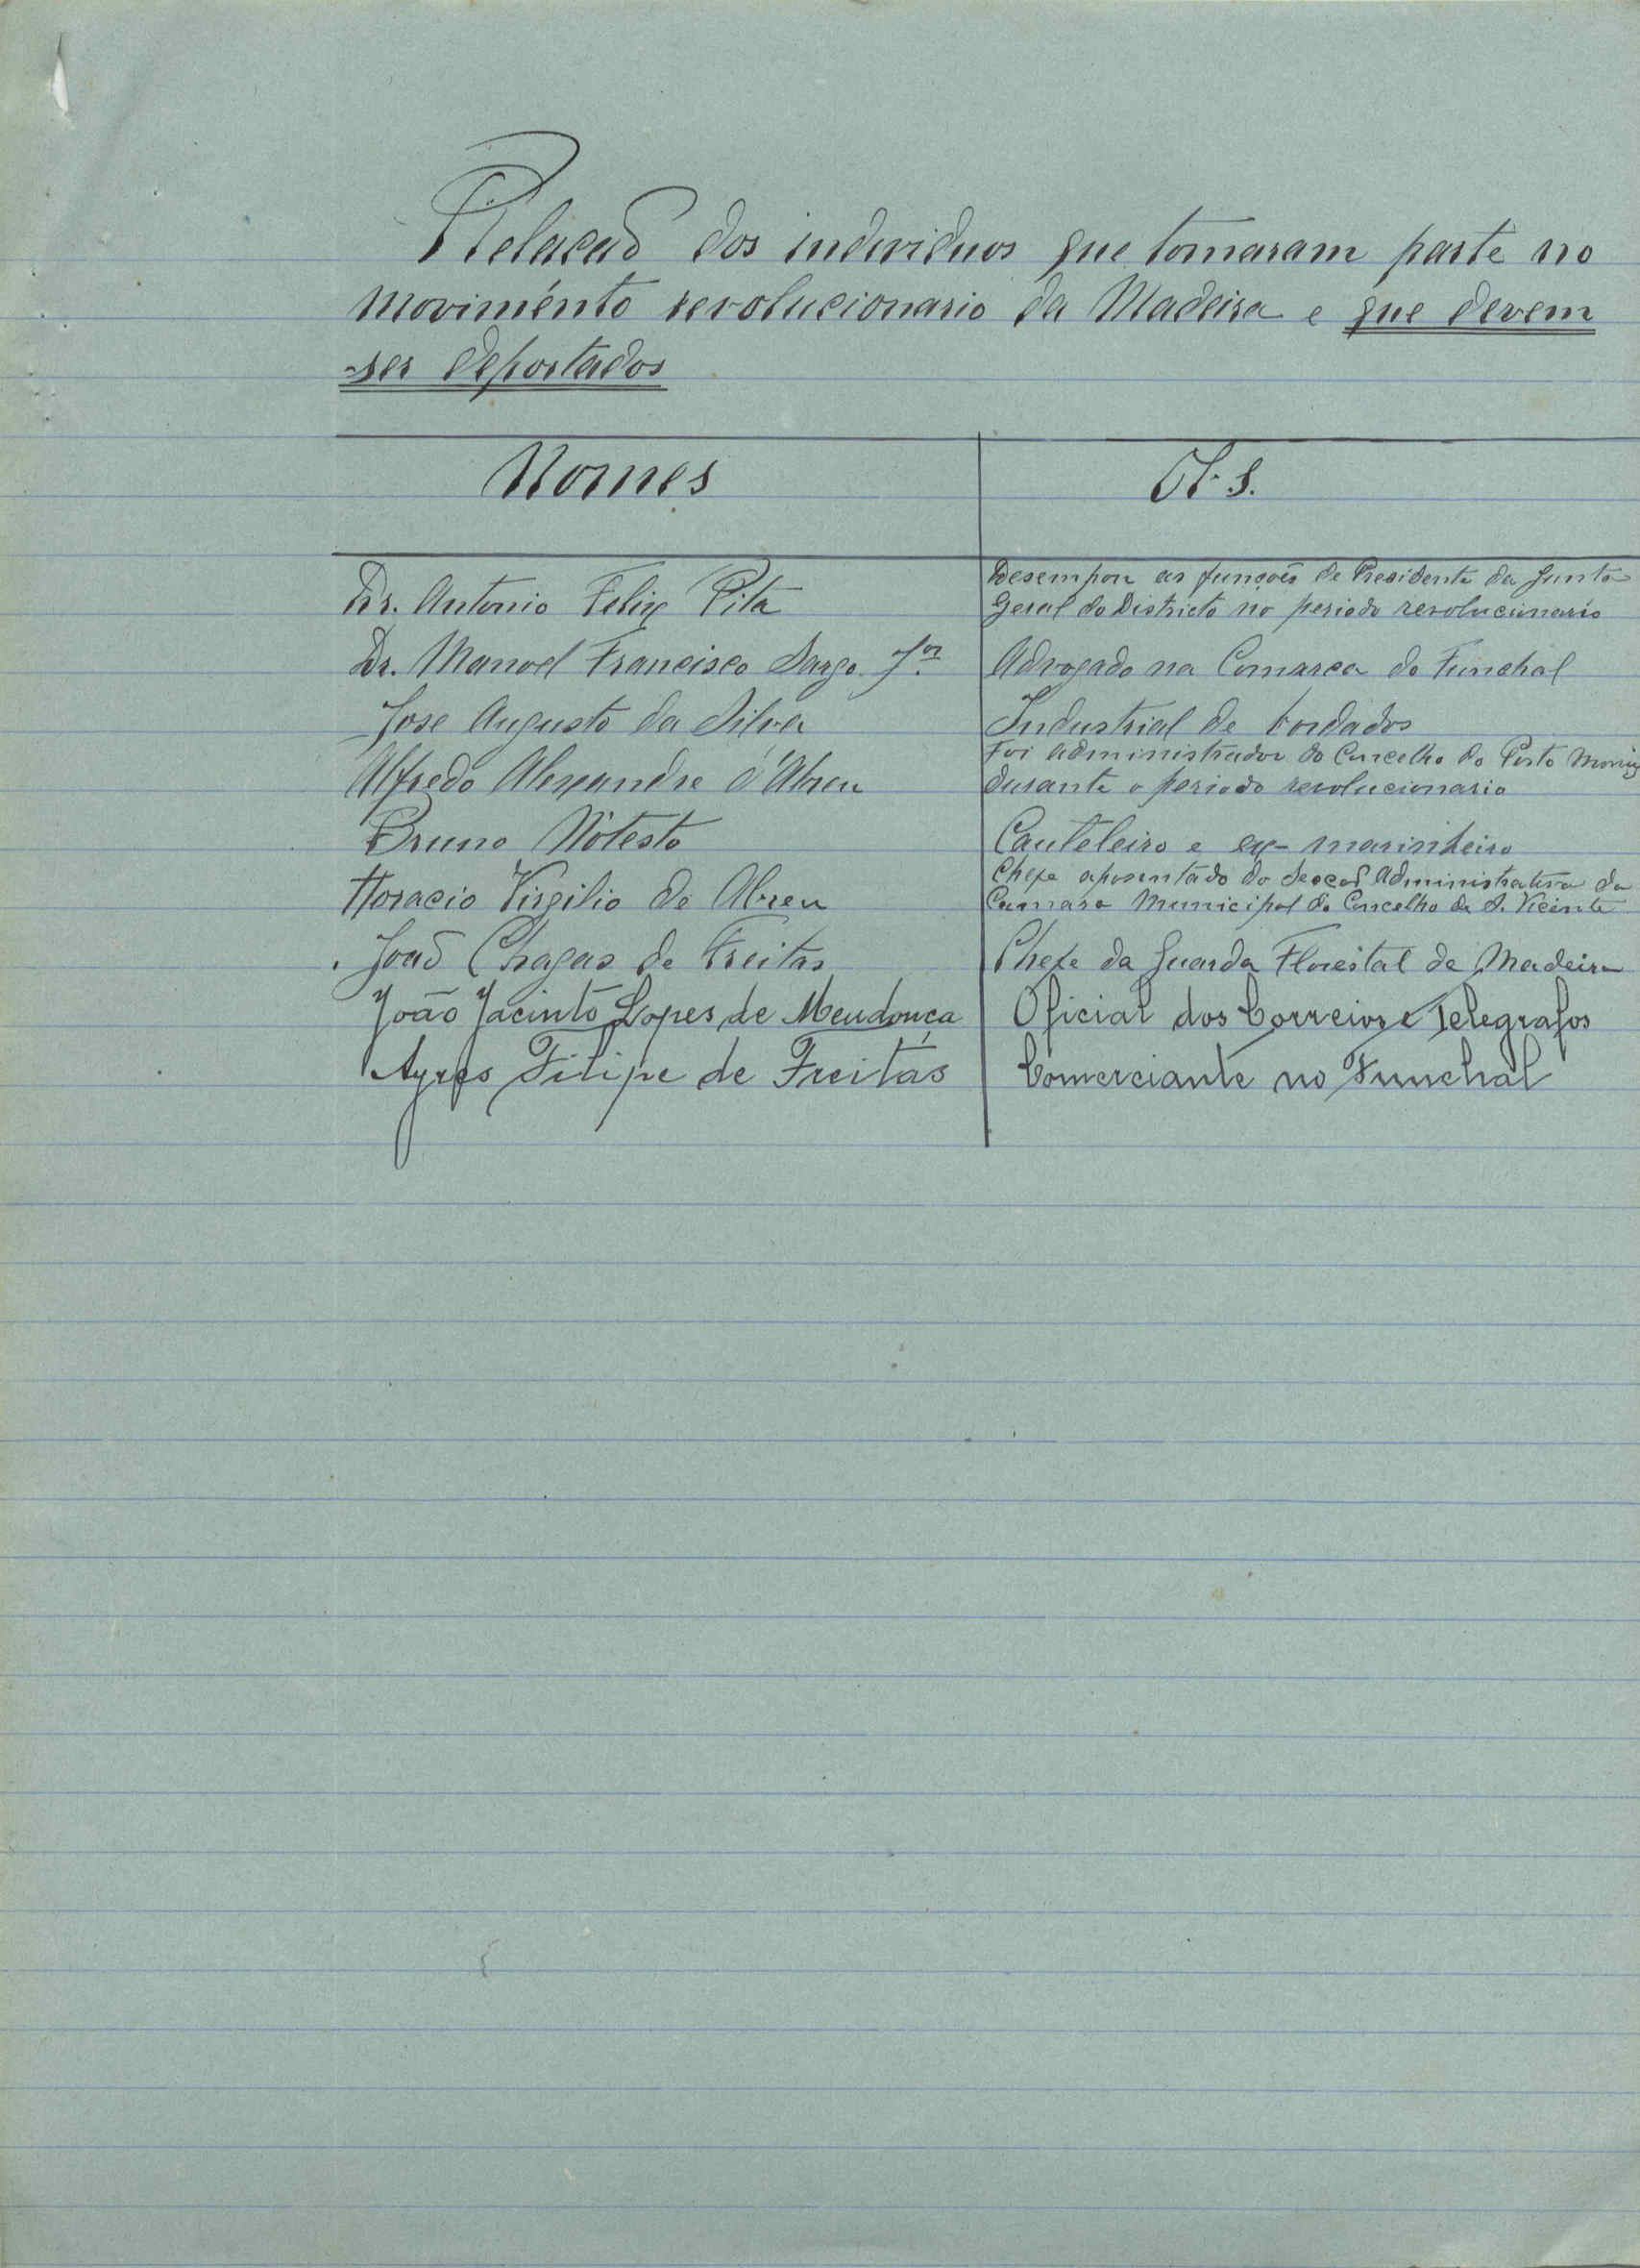 Relação dos individuos que tomaram parte no
movimento revolucionario da Madeira e que devem
ser deportados
Nomes Obs.
Dr. Antonio Felix Pita
Desempou as funções de Presidente da Junta
Geral do Districto no periodo revolucionario
Dr. Manoel Francisco Sargo Jor. Advogado na Comarca do Funchal
Jose Augusto da Silva Industrial de bordados
Alfredo Alexandre d'Abreu
Foi administrador do Concelho do Porto Moniz
durante o periodo revolucionario
Bruno Cauteleiro e ex-marinheiro
Horacio Virgilio de Abreu
Chefe aposentado da Secção Administrativa da
Camara Municipal do Concelho de S. Vicente
João Chagas de Freitas Chefe da Guarda Florestal da Madeira
João Jacinto Lopes de Mendonça Oficial dos Correios e Telegrafos
Ayres Filipe de Freitas Comerciante no Funchal